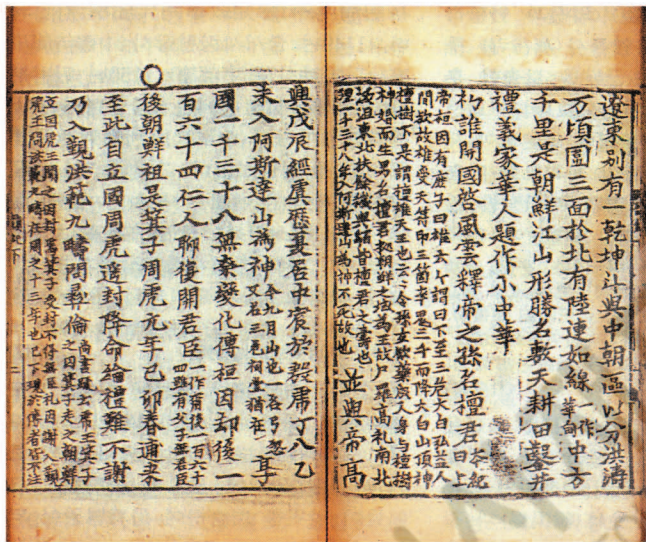 遼東別有一乾坤斗與中朝區以分洪濤
万頃圍三面於北有陸連如線一作華句中方
千里是朝鮮江山形勝名敷天耕田鑿井
禮義家華人題作小中華
初誰開國啓風雲釋帝之孫名檀君本紀曰上
帝桓因有庶子曰雄云々謂曰下至三危大白弘益人
間欤故雄受天符印三箇率鬼三千而降大白山頂神
檀樹下是謂檀雄天王也云々令孫女飲藥成人身与檀樹
神婚而生男名檀君據朝鮮之域為王故尸羅高礼南北
沃沮東北扶餘穢與貊皆檀君之壽也
理一千三十八年入阿斯達山為神不死故也並與帝高
興戊辰經虞歷夏居中宸於殷虎丁八乙
未入阿斯達山為神今九月山也一名弓忽又名三危祠堂猶在享
國一千三十八無奈變化傳桓因却後一
百六十四仁人聊復開君臣一作尒後一百六十四雖有父子無君臣
後朝鮮祖是箕子周虎元年己卯春逋来
至此自立國周虎遥封降命綸禮難不謝
乃入覲洪範九疇問彝倫尚書疏云虎王箕子之囚箕子走之朝鮮
立国虎王聞之因封焉箕子受封不得無臣礼因謝入覲
虎王問洪範九疇在周之十三年也已下現於傳者皆不注
韻紀下
二